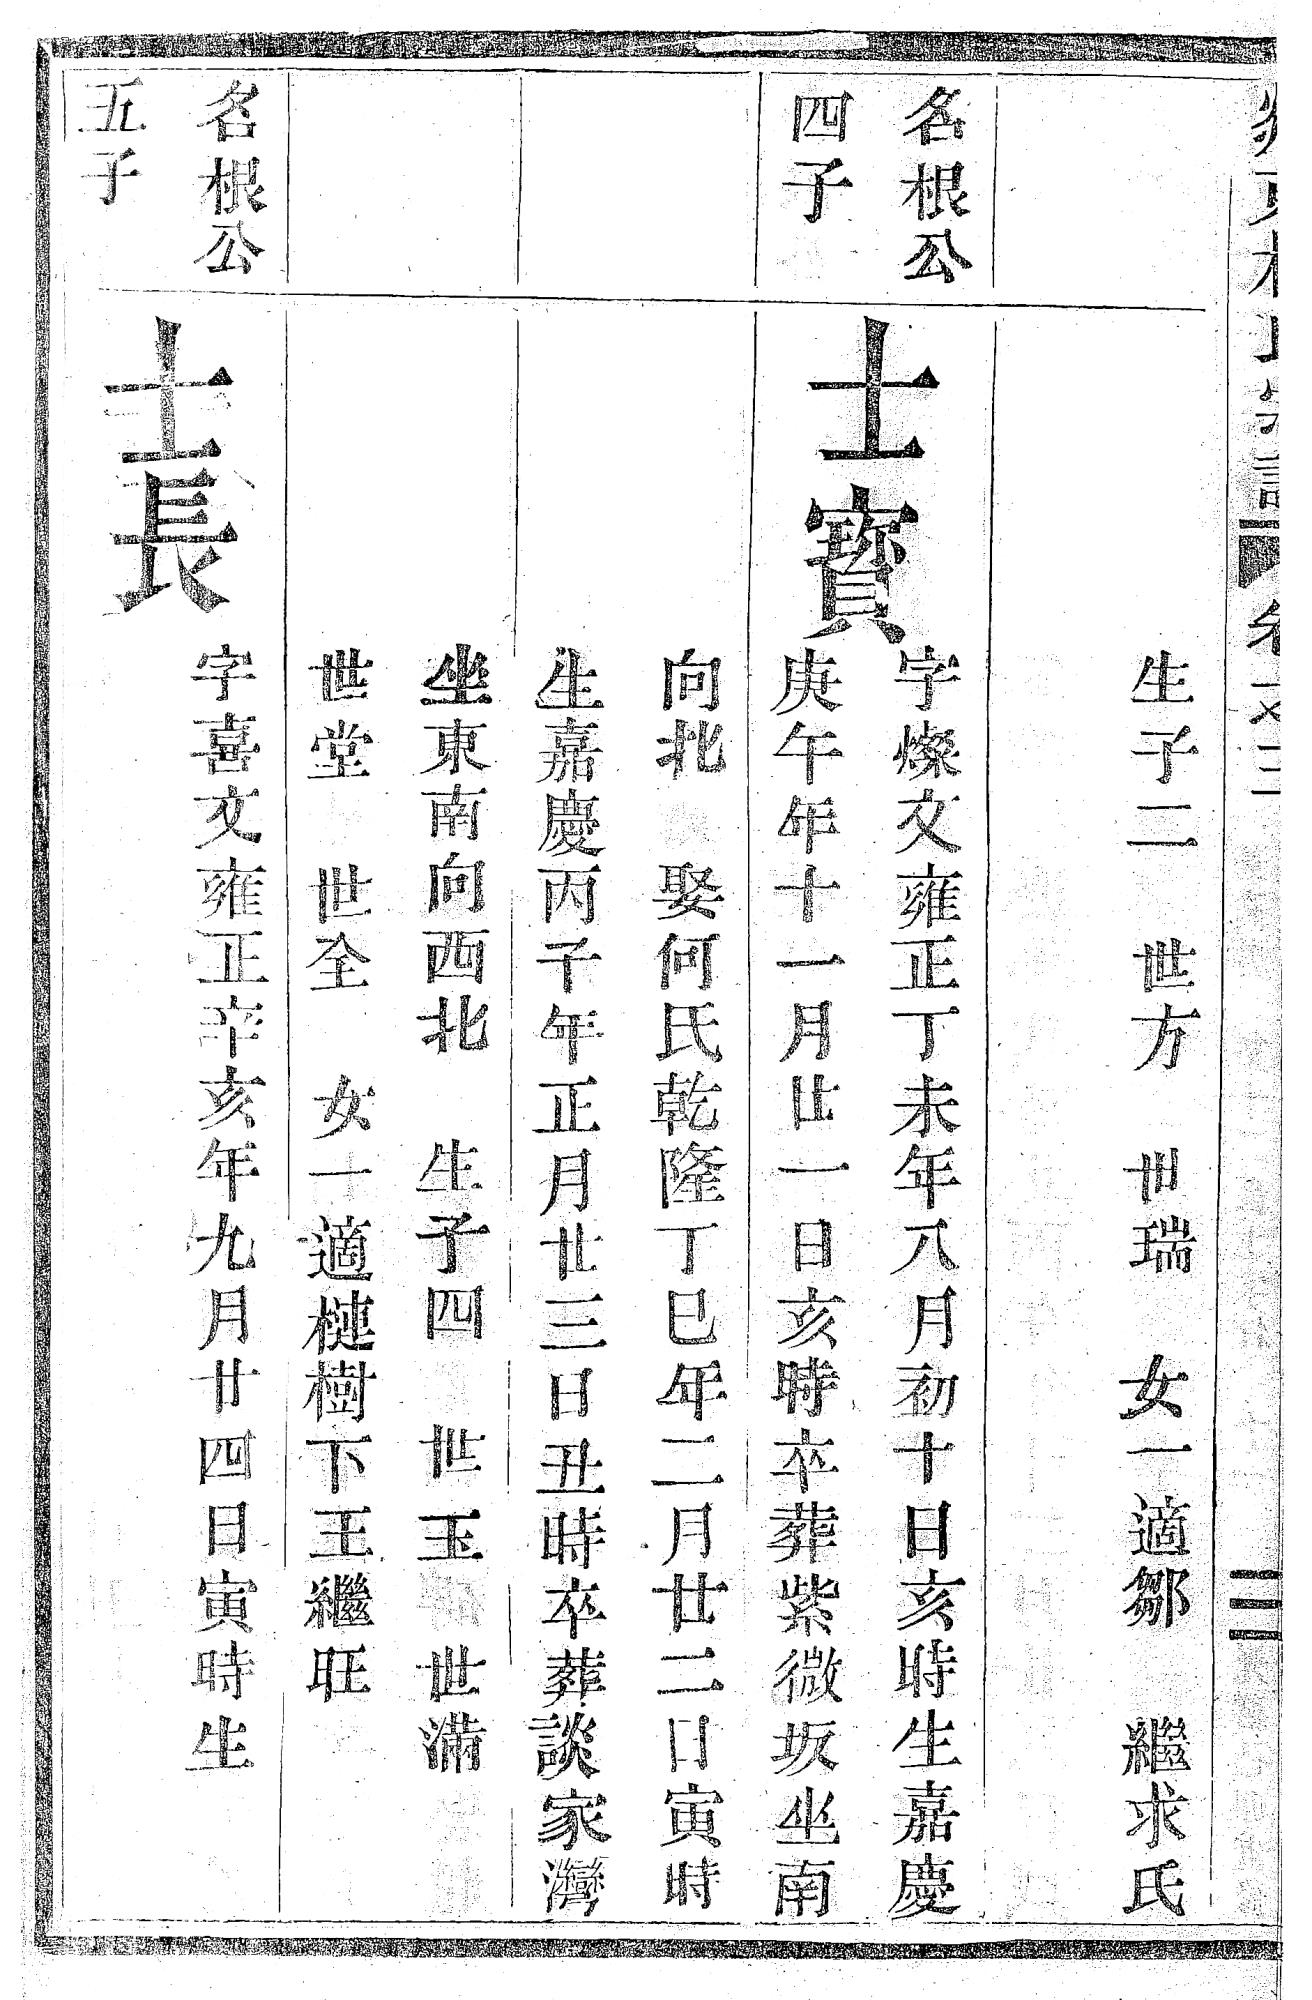 三
生子二 世方 世瑞 女一適鄒 繼求氏
名根公
四子
士寶
字燦文雍正丁未年八月初十日亥時生嘉慶
庚午年十一月廿一日亥時卒葬紫微坂坐南
向北 娶何氏乾隆丁巳年二月廿二日寅時
生嘉慶丙子年正月廿三日丑時卒葬談家灣
坐東南向西北 生子四 世玉 世滿
世堂 世全 女一適槤樹下王繼旺
名根公
五子
士長
字喜文雍正辛亥年九月廿四日寅時生